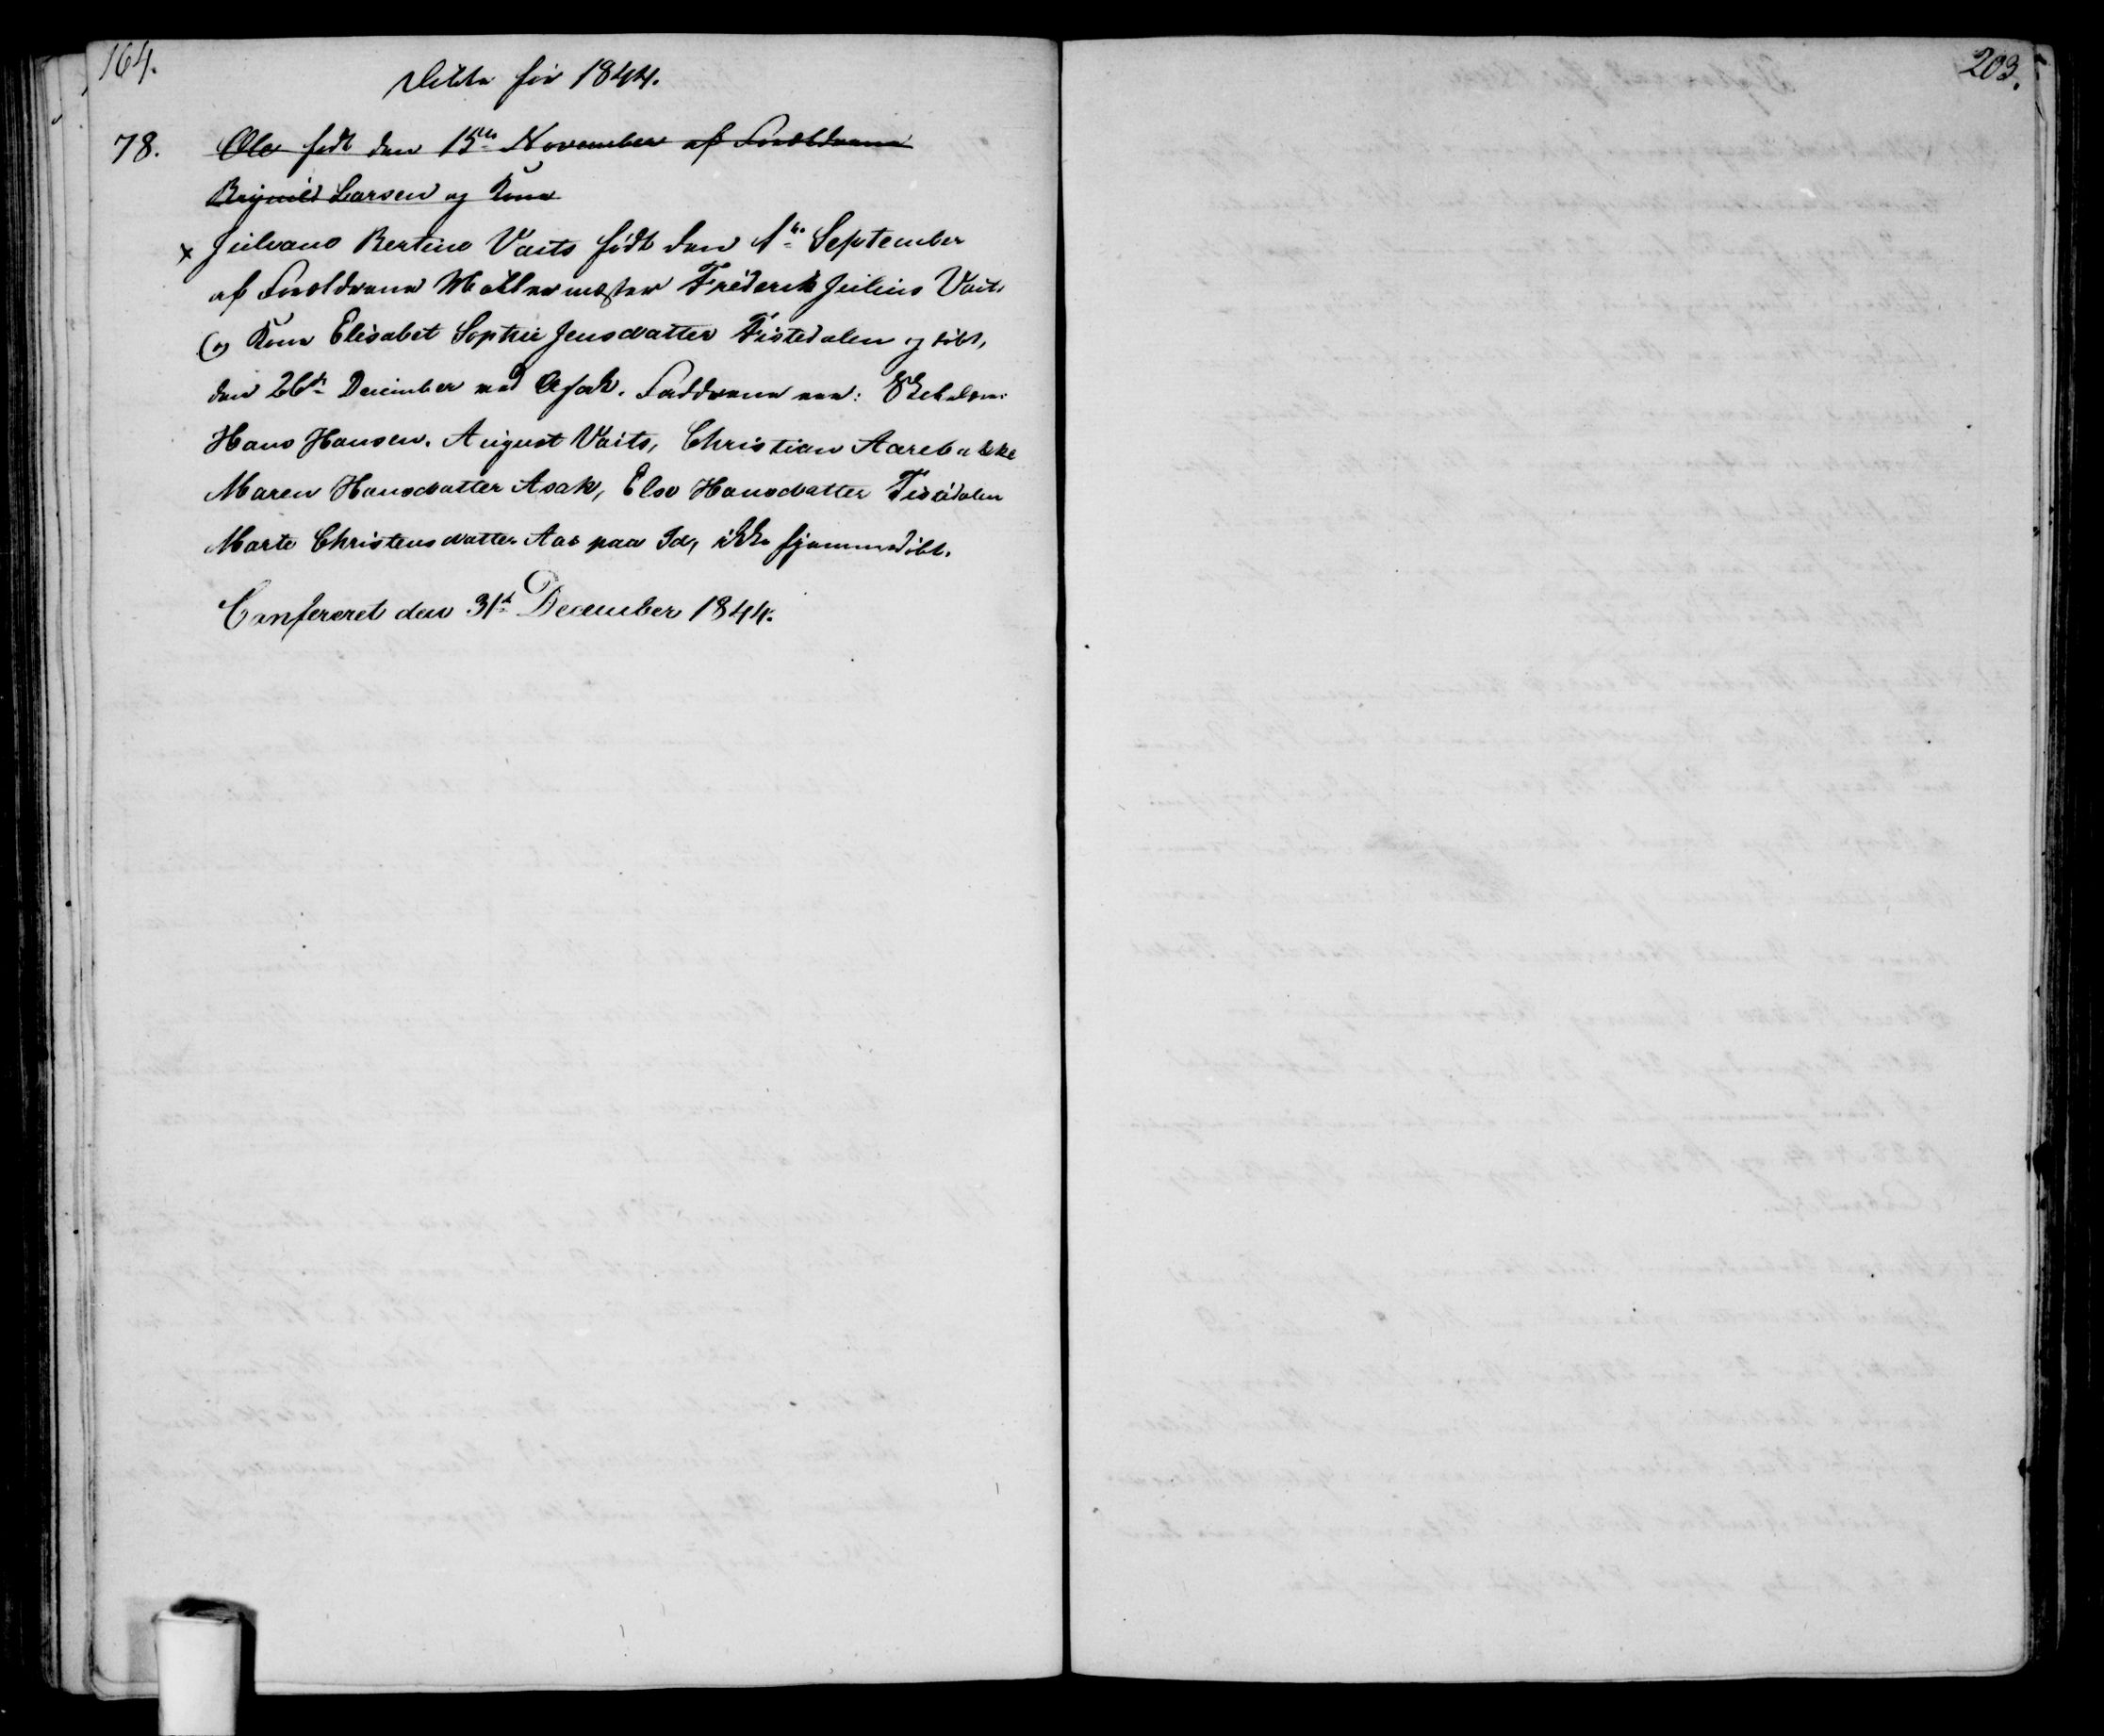 164.
Ditto for 1844.
78. Ole født den 15de November af Forældrene
Brynild Larsen og Kone
x Julvano Bertino Vaits født den 1te September
af Forældrene Møllermester Friderik Julius Vaits
og Kone Elisabet Sophie Jensdatter Tistedalen og døbt,
den 26de December ved Asak. Fadderne var:
Hans Hansen. August Vaits, Christian Aarebakke
Maren Hansdatter Asak, Else Hansdatter Tistedalen
Marte Christensdatter Aas paa Id, ikke hjemmedøbt.
Confereret den 31te December 1844.
203.